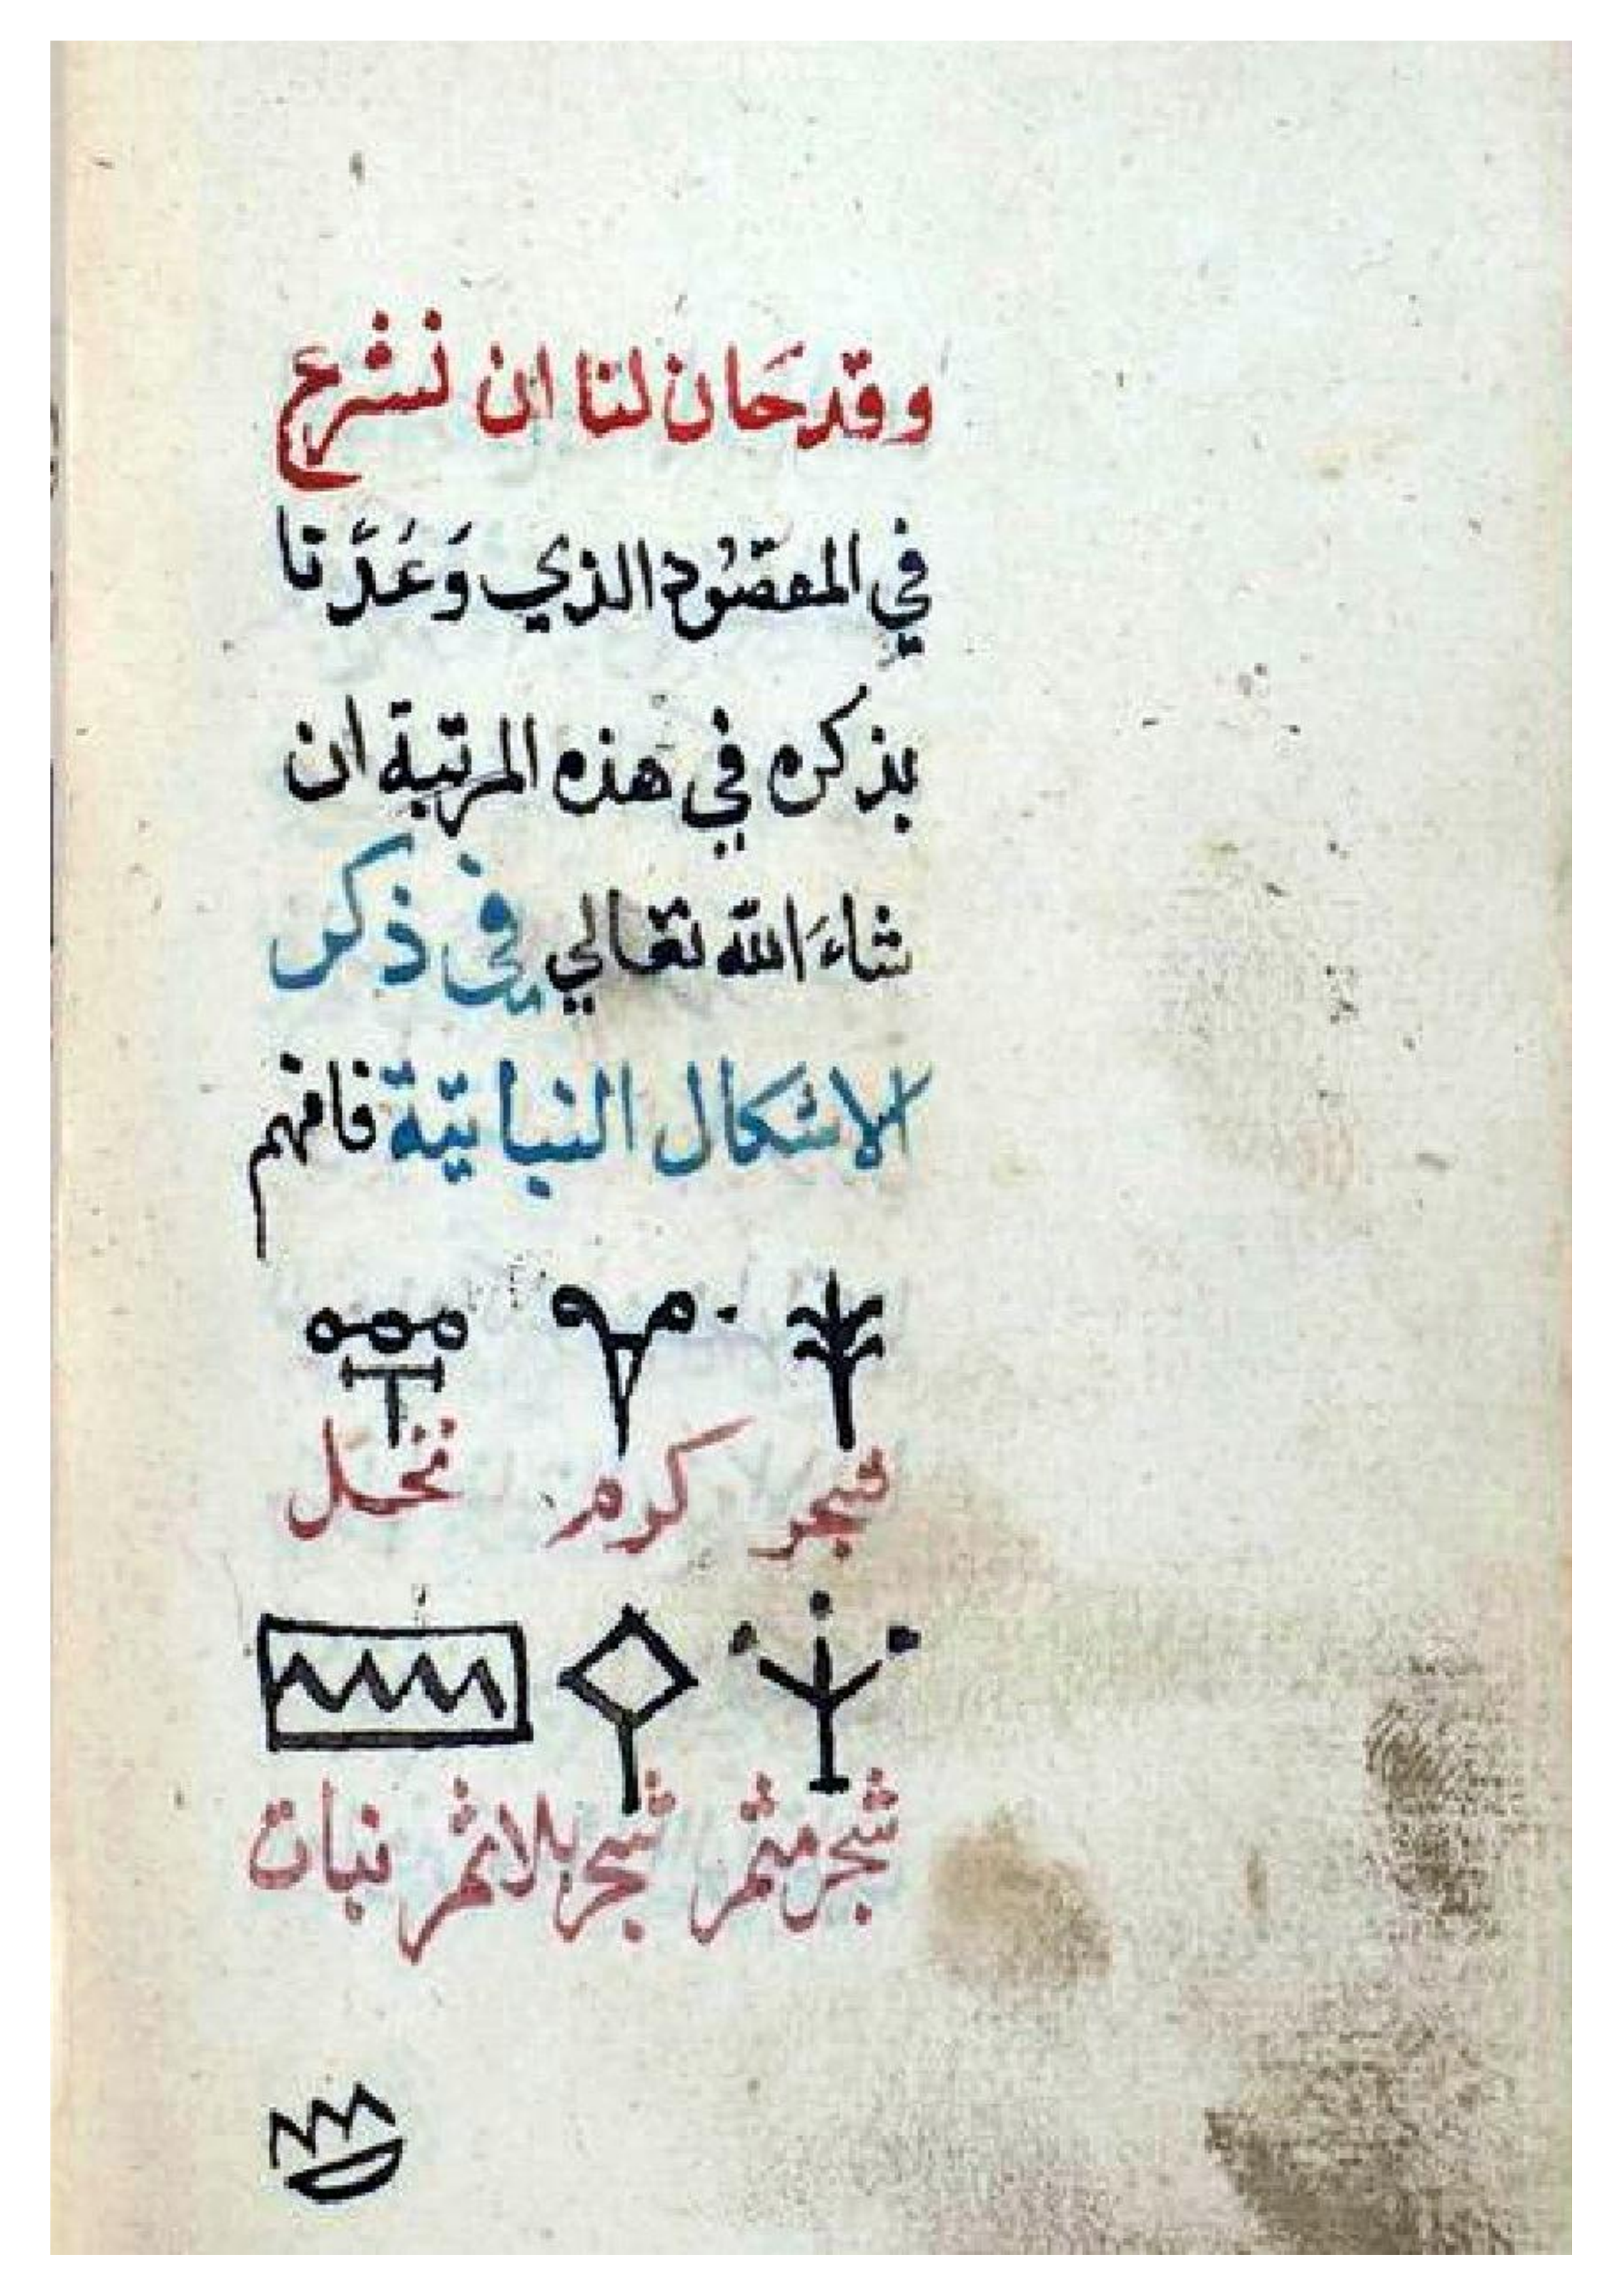 وقد حَان لنا ان نشرع
في المقصُود الذي وَعَدْنا
بذكره في هذه المرتبة ان
شاءَ الله تعالي في ذكر
الاشكال النباتية فافهم
شجر كرم نخل
شجر مثمر شجر بلا ثمر نبات